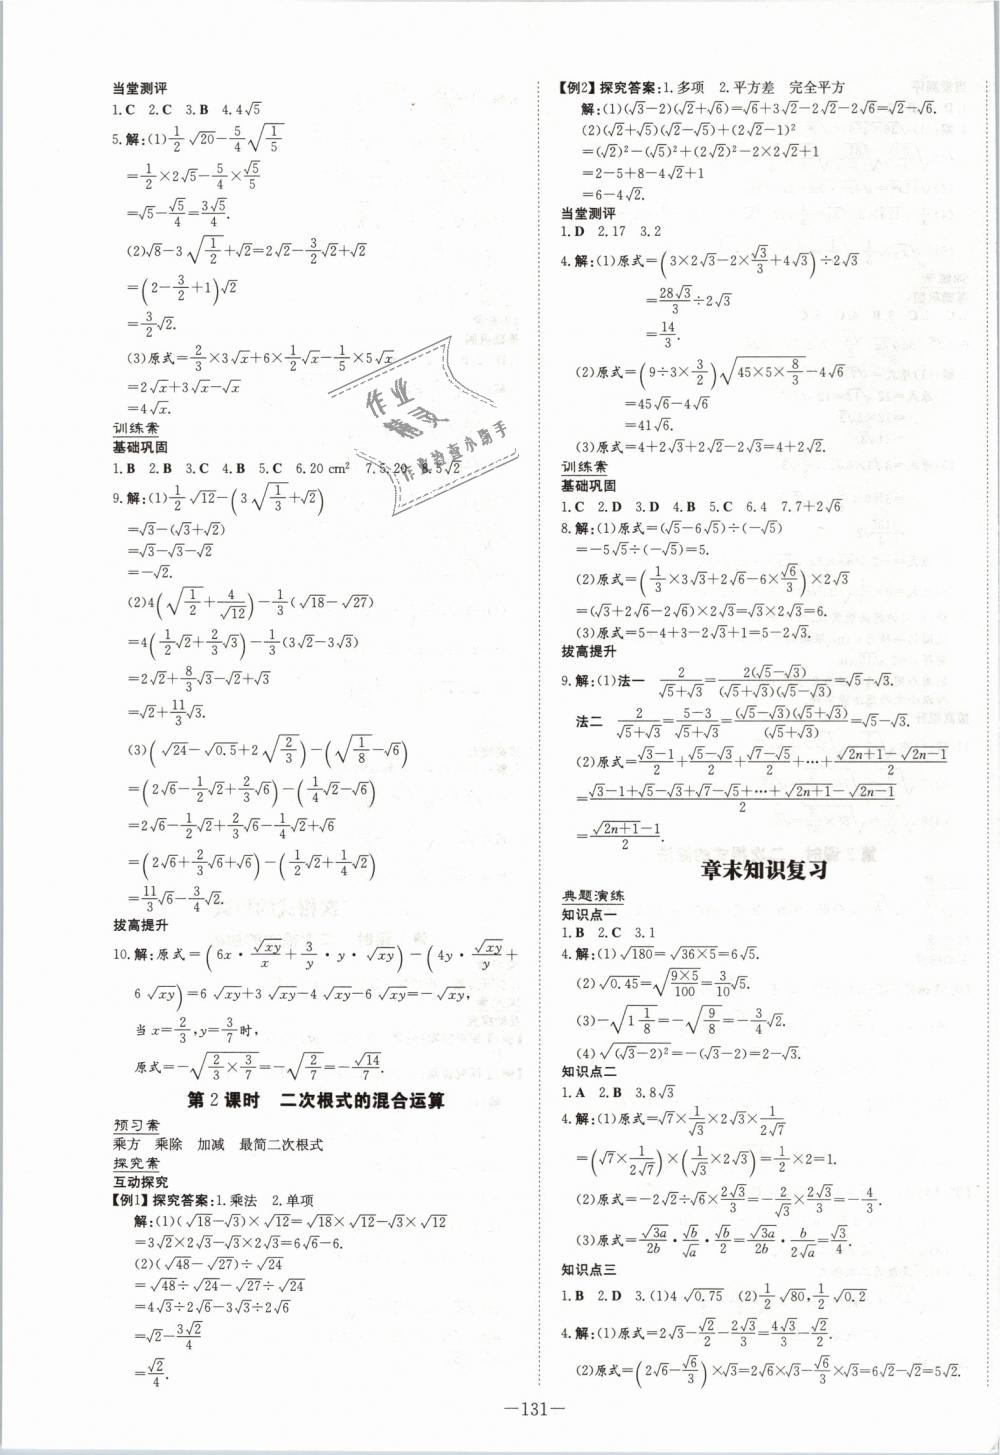 当堂测评
1.C 2.C 3.B 4.4√5
5.解:(1)1/2√20-5/4√(1/5)
=1/2×2√5-5/4×√5/5
=√5-√5/4=3√5/4.
(2)√8-3√(1/2)+√2=2√2-3/2√2+√2
=(2-3/2+1)√2
=3/2√2.
(3)原式=2/3×3√x+6×1/2√x-1/5×5√x
=2√x+3√x-√x
=4√x.
训练案
基础巩固
1.B 2.B 3.C 4.B 5.C 6.20 cm² 7.5,20 8.5√2
9.解:(1)1/2√12-(3√(1/3)+√2)
=√3-(√3+√2)
=√3-√3-√2
=-√2.
(2)4(√(1/2)+4/√12)-1/3(√18-√27)
=4(1/2√2+2/3√3)-1/3(3√2-3√3)
=2√2+8/3√3-√2+√3
=√2+11/3√3.
(3)(√24-√0.5+2√(2/3))-(√(1/8)-√6)
=(2√6-1/2√2+2/3√6)-(1/4√2-√6)
=2√6-1/2√2+2/3√6-1/4√2+√6
=(2√6+2/3√6+√6)-(1/2√2+1/4√2)
=11/3√6-3/4√2.
拔高提升
10.解:原式=(6x·√xy/x+3/y·y·√xy)-(4y·√xy/y+
6√xy)=6√xy+3√xy-4√xy-6√xy=-√xy,
当x=2/3,y=3/7时,
原式=-√(2/3×3/7)=-√(2/7)=-√14/7.
第2课时 二次根式的混合运算
预习案
乘方 乘除 加减 最简二次根式
探究案
互动探究
【例1】探究答案:1.乘法 2.单项
解:(1)(√18-√3)×√12=√18×√12-√3×√12
=3√2×2√3-√3×2√3=6√6-6.
(2)(√48-√27)÷√24
=√48÷√24-√27÷√24
=4√3÷2√6-3√3÷2√6
=√2-3√2/4
=√2/4.
【例2】探究答案:1.多项 2.平方差 完全平方
解:(1)(√3-2)(√2+√6)=√6+3√2-2√2-2√6=√2-√6.
(2)(√2+√5)(√2-√5)+(2√2-1)²
=(√2)²-(√5)²+(2√2)²-2×2√2+1
=2-5+8-4√2+1
=6-4√2.
当堂测评
1.D 2.17 3.2
4.解:(1)原式=(3×2√3-2×√3/3+4√3)÷2√3
=28√3/3÷2√3
=14/3.
(2)原式=(9÷3×3/2)√(45×5×8/3)-4√6
=45√6-4√6
=41√6.
(3)原式=4+2√3+2√2-2√3=4+2√2.
训练案
基础巩固
1.C 2.D 3.D 4.B 5.C 6.4 7.7+2√6
8.解:(1)原式=(√5-6√5)÷(-√5)
=-5√5÷(-√5)=5.
(2)原式=(1/3×3√3+2√6-6×√6/3)×2√3
=(√3+2√6-2√6)×2√3=√3×2√3=6.
(3)原式=5-4+3-2√3+1=5-2√3.
拔高提升
9.解:(1)法一 2/(√5+√3)=2(√5-√3)/((√5+√3)(√5-√3))=√5-√3.
法二 2/(√5+√3)=(5-3)/(√5+√3)=(√5-√3)(√5+√3)/(√5+√3)=√5-√3.
(2)原式=(√3-1)/2+(√5-√3)/2+(√7-√5)/2+…+(√(2n+1)-√(2n-1))/2
=(√3-1+√5-√3+√7-√5+…+√(2n+1)-√(2n-1))/2
=(√(2n+1)-1)/2.
章末知识复习
典题演练
知识点一
1.B 2.C 3.1
4.解:(1)√180=√(36×5)=6√5.
(2)√0.45=√(9×5/100)=3/10√5.
(3)-√(1 1/8)=-√(9/8)=-3/4√2.
(4)√(√3-2)²=-(√3-2)=2-√3.
知识点二
1.A 2.B 3.8√3
4.解:(1)原式=√7×1/√3×2√3×1/2√7
=(√7×1/2√7)×(1/√3×2√3)=1/2×2=1.
(2)原式=-2√2÷√6×2√3/3=-2/√3×2√3/3=-4/3.
(3)原式=√3a/2b·√b/√a·√b/2=√3a/2b·b/2√a=√3/4.
知识点三
1.B 2.D 3.(1)4√0.75 (2)1/2√80,1/2√0.2
4.解:(1)原式=2√3-√2/2-2√3/3=4√3/3-√2/2.
(2)原式=(2√6-√6/3)×√3=2√6×√3-√6/3×√3=6√2-√2=5√2.
—131—
作业
精灵
作业检查小助手